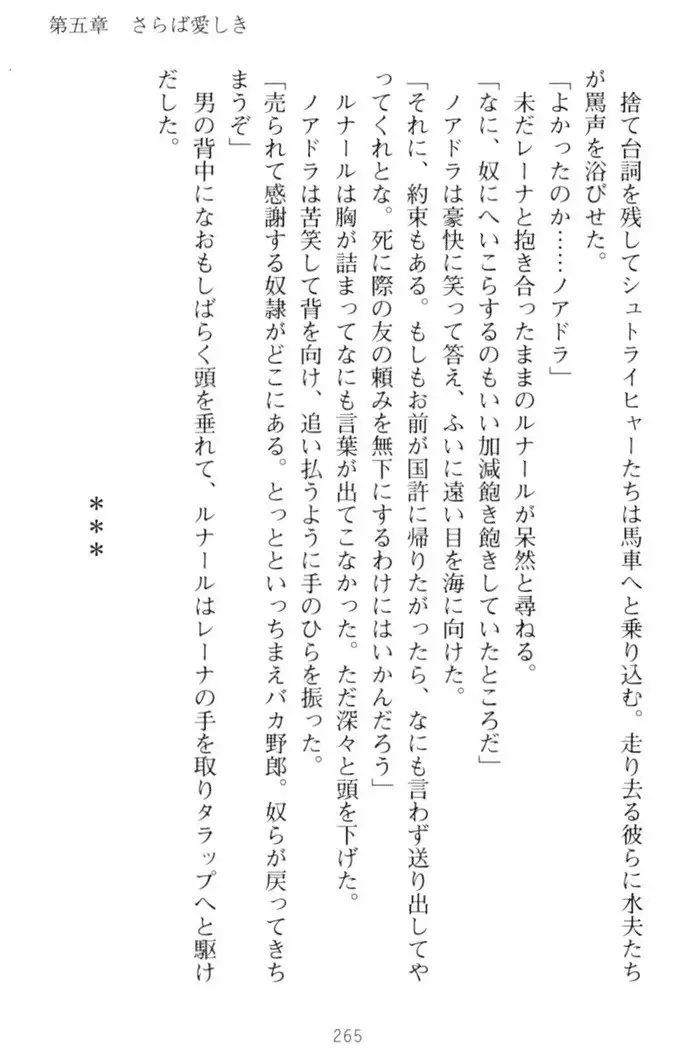 第五章　さらば愛しき
　捨て台詞を残してシュトライヒャーたちは馬車へと乗り込む。走り去る彼らに水夫たち
が罵声を浴びせた。
「よかったのか……ノアドラ」
　未だレーナと抱き合ったままのルナールが呆然と尋ねる。
「なに、奴にへいこらするのもいい加減飽き飽きしていたところだ」
　ノアドラは豪快に笑って答え、ふいに遠い目を海に向けた。
「それに、約束もある。もしもお前が国許に帰りたがったら、なにも言わず送り出してや
ってくれとな。死に際の友の頼みを無下にするわけにはいかんだろう」
　ルナールは胸が詰まってなにも言葉が出てこなかった。ただ深々と頭を下げた。
　ノアドラは苦笑して背を向け、追い払うように手のひらを振った。
「売られて感謝する奴隷がどこにある。とっとといっちまえバカ野郎。奴らが戻ってきち
まうぞ」
　男の背中になおもしばらく頭を垂れて、ルナールはレーナの手を取りタラップへと駆け
だした。
＊＊＊
265